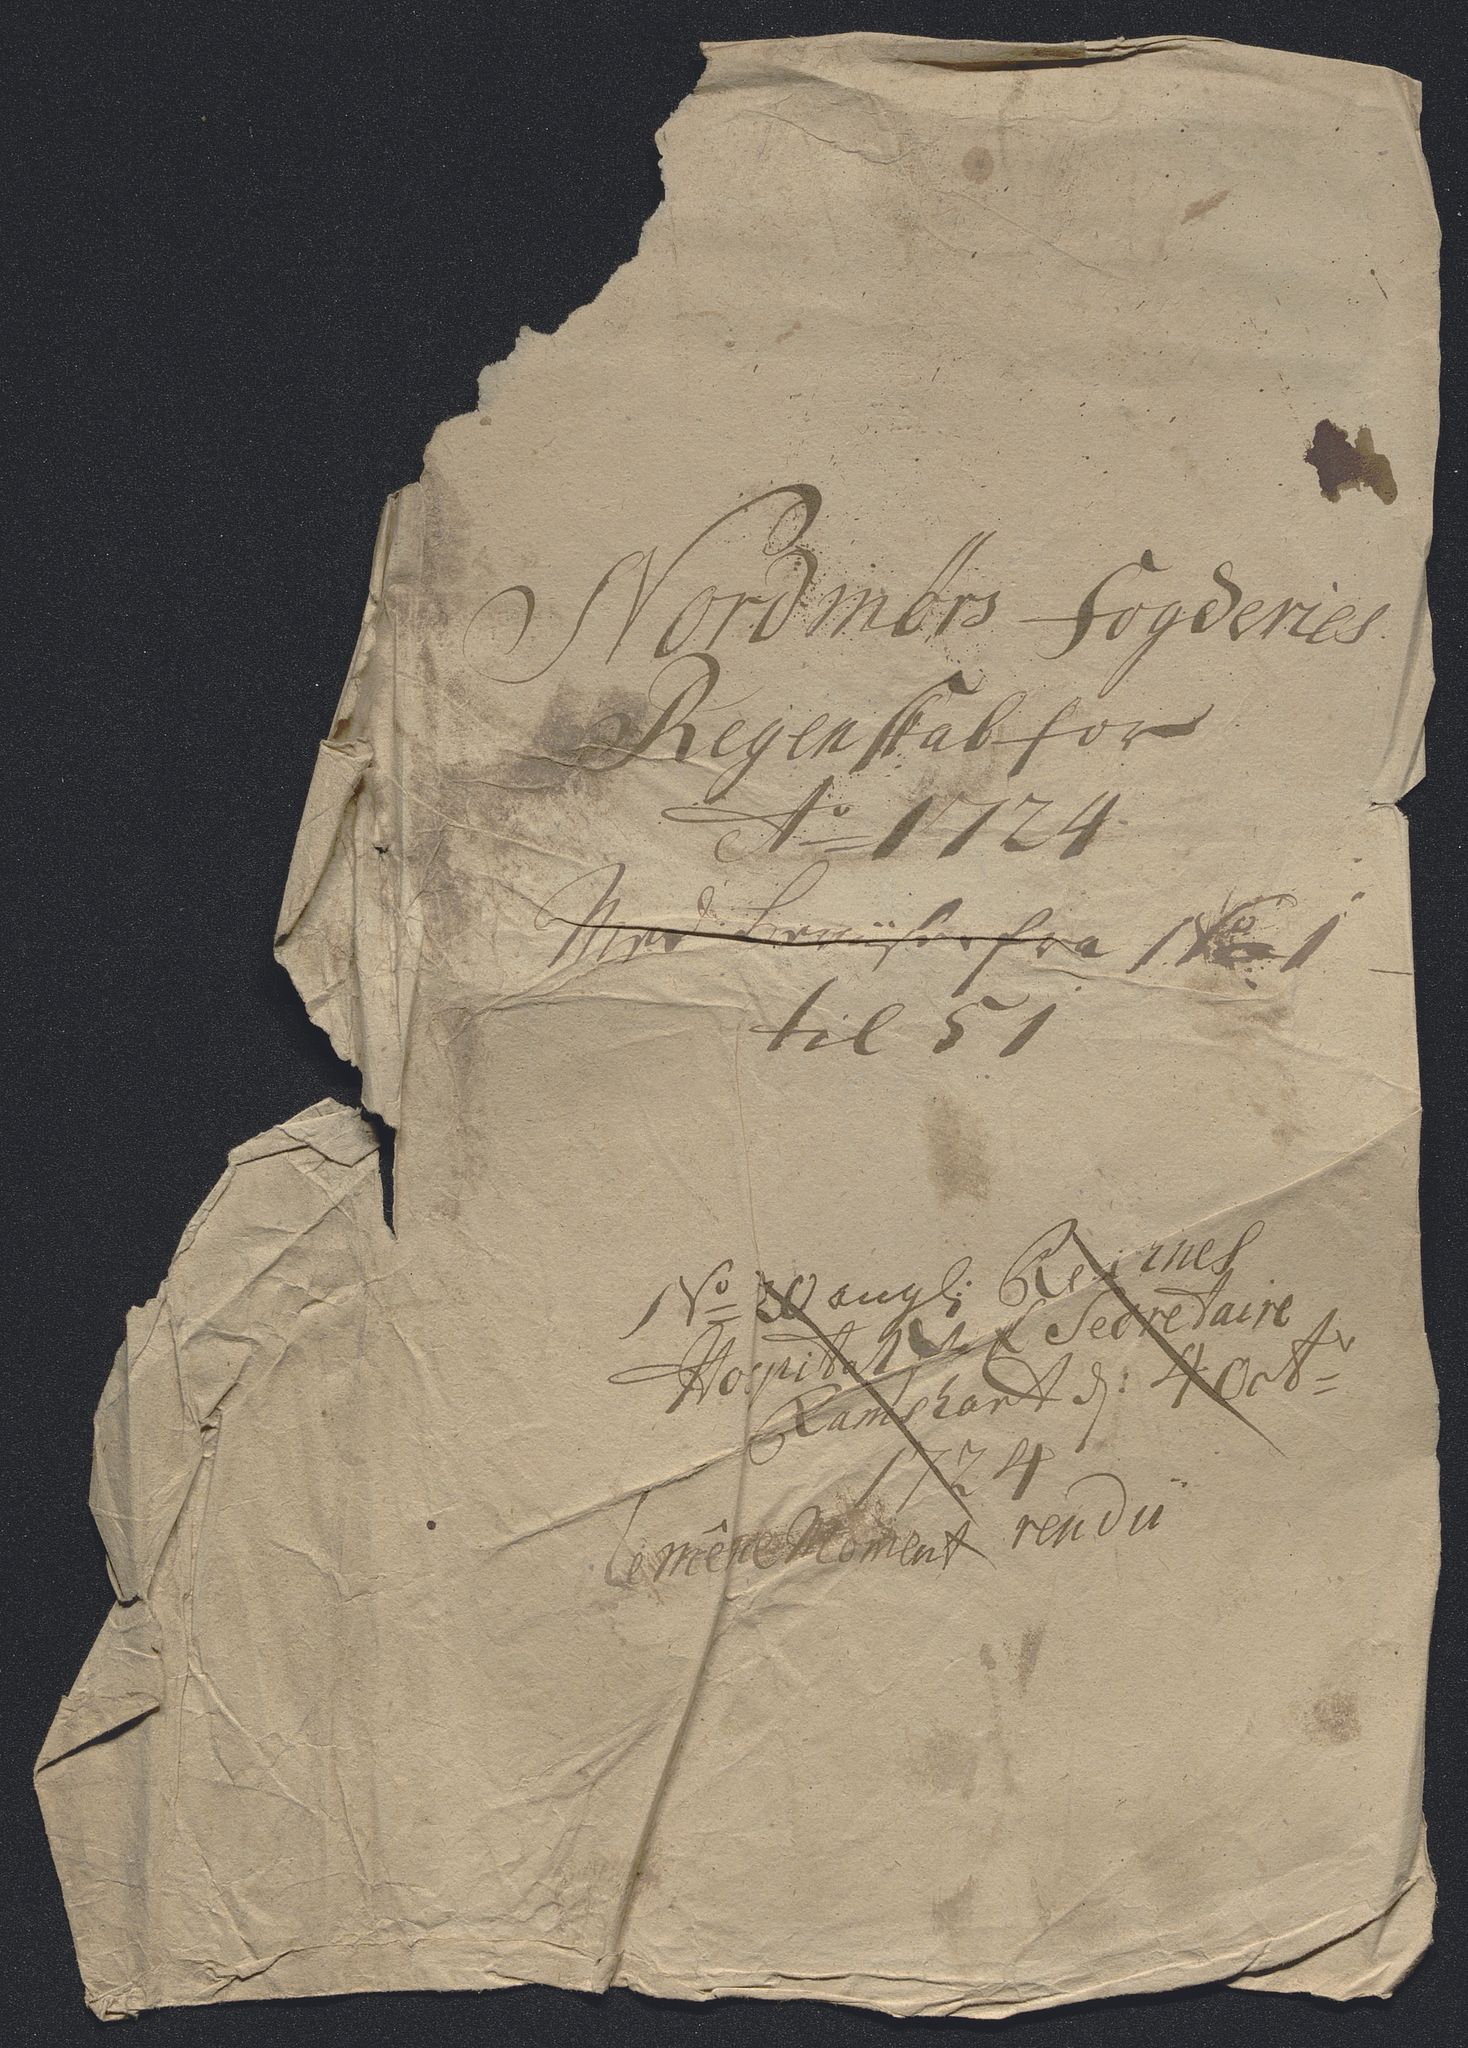 Nordmörs Fogderies
Regenskab for
Ao 1724
Med beviiser fra No 1
til 51
No 30 angl:
Hospital Secretaire
Ramshart d: 4 Octr
1724
le même Moment rendü